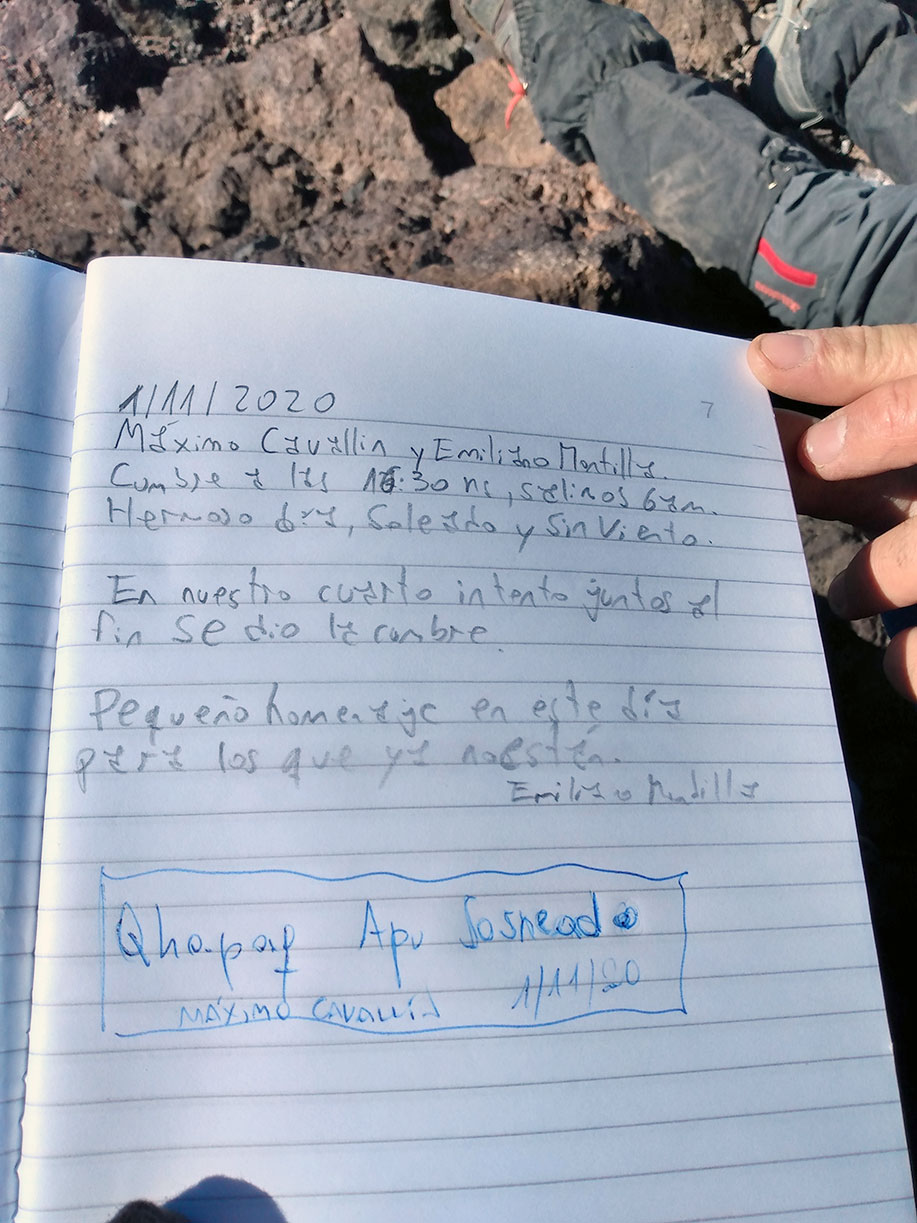 1/11/2020
7
Máximo Cavallin y Emiliano Montilla.
Cumbre a las 16:30 hs, salimos 6 am.
Hermoso día, Soleado y sin viento.
En nuestro cuarto intento juntos al
fin se dio la cumbre.
Pequeño homenaje en este día
para los que ya no están.
Emiliano Montilla
Qhapaq Apu Sosneado
MÁXIMO CAVALLIN 1/11/20